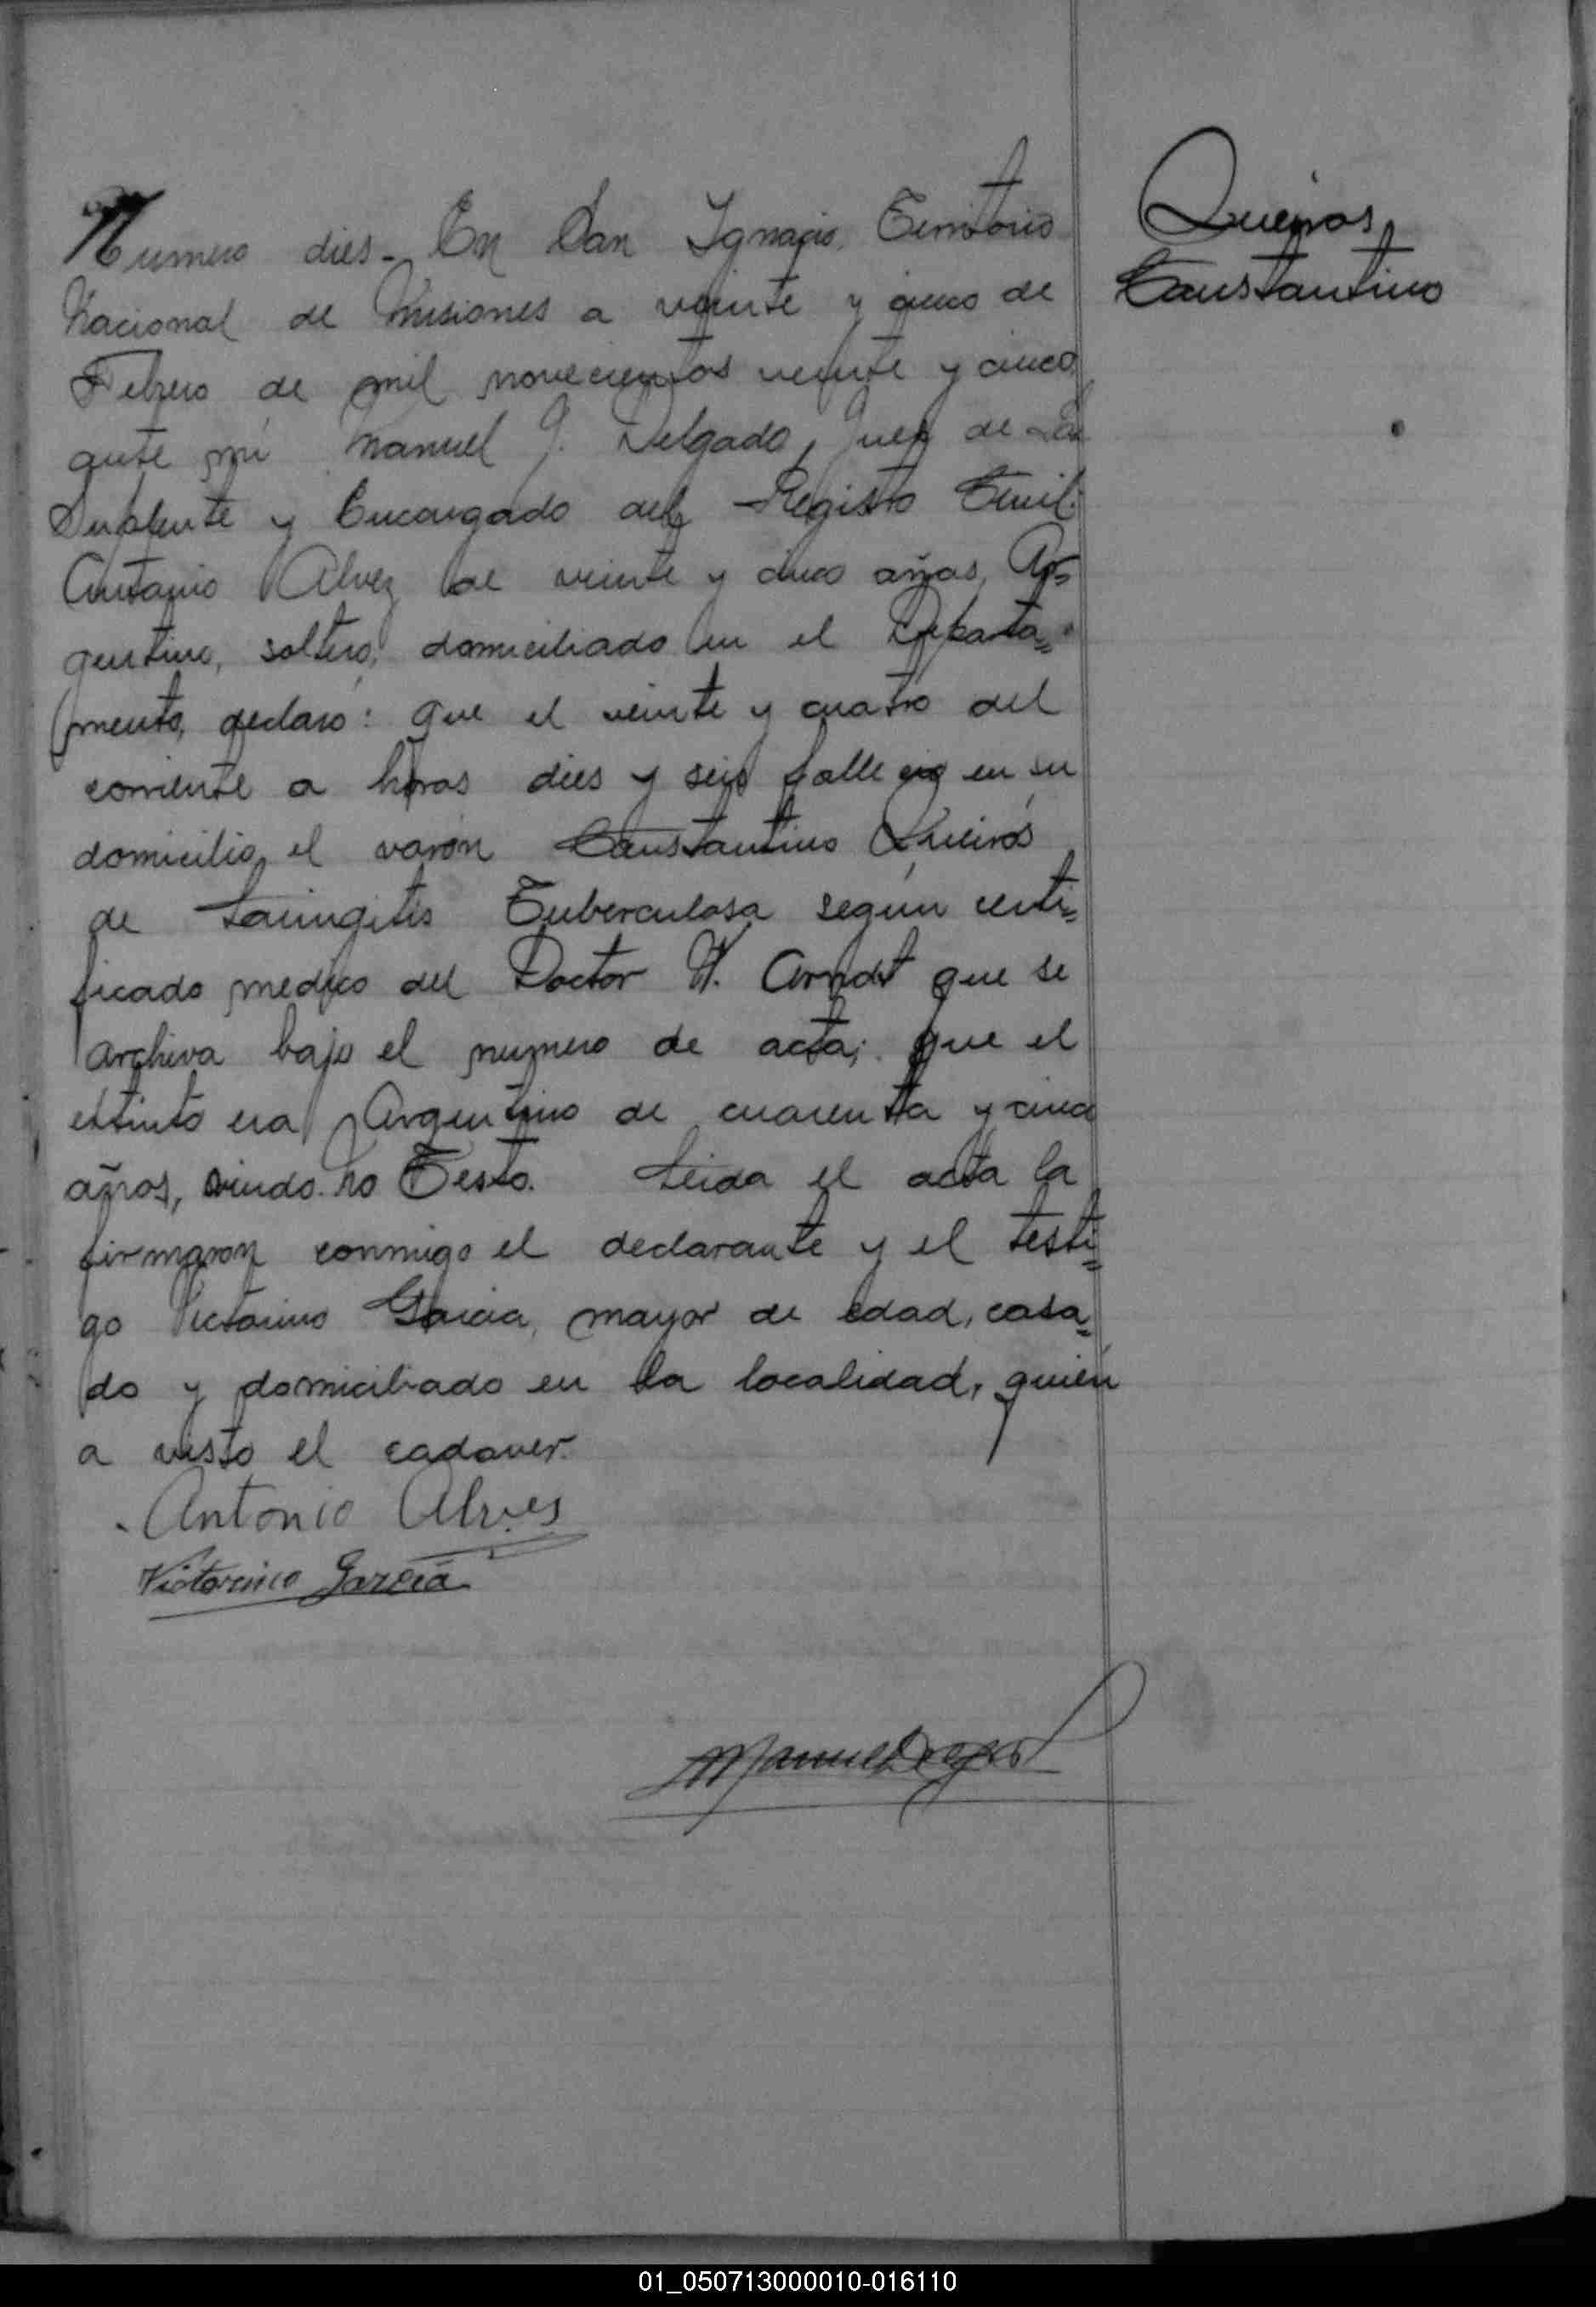 Queiros,
Constantino
Numero dies. En San Ignacio, Territorio
Nacional de Misiones a veinte y cinco de
Febrero de mil novecientos veinte y cinco
ante mi Manuel J. Delgado, Juez de Paz
Suplente y Encargado del Registro Civil.
Antonio Alvez de veinte y cinco años, Ar=
gentino, soltero, domiciliado en el Departa=
mento, declaró: que el veinte y cuatro del
corriente a horas dies y seis fallecio en su
domicilio, el varón Constantino Queirós
de Laringitis Tuberculosa según certi=
ficado medico del Doctor W. Arndt que se
archiva bajo el numero de acta; que el
extinto era Argentino de cuarenta y cinco
años, viudo. No Testo. Leida el acta la
firmaron conmigo el declarante y el testi=
go Victorino Garcia, mayor de edad, casa=
do y domiciliado en la localidad, quién
a visto el cadaver.
Antonio Alves
Victorino García
01_050713000010-016110